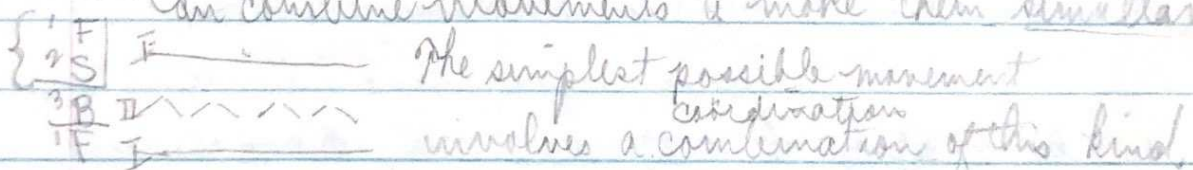 can combine movements & make them
{ 1 F
2 S I The simplest possible movement
3 B II coordination
1 F I involves a combination of this kind